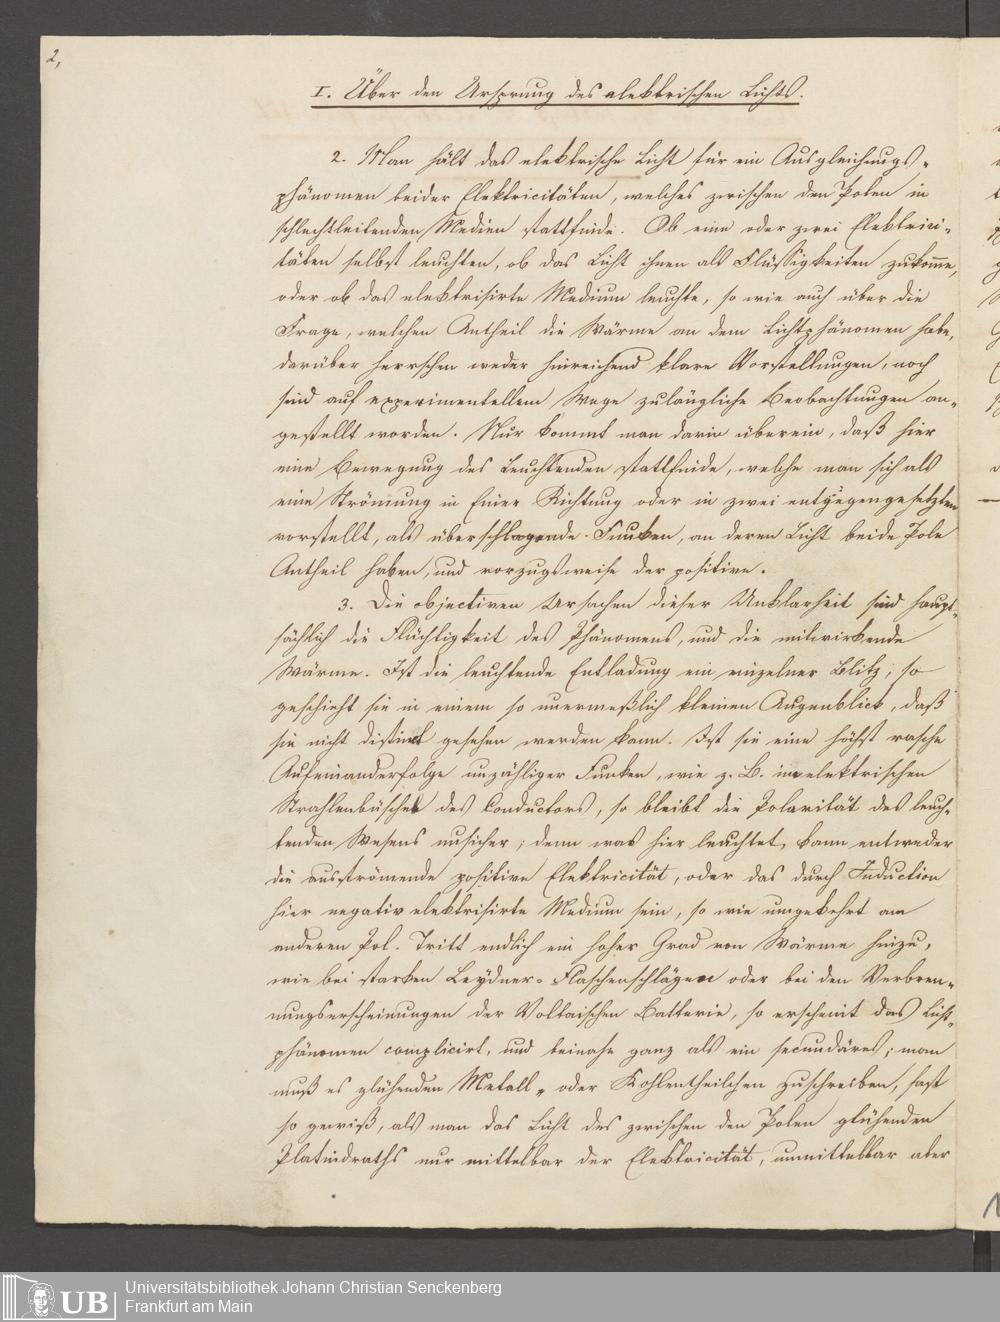 2,
I. Über den Ursprung des elektrischen Lichts.
2. Man hält das elektrische Licht für ein Ausgleichungs-
phänomen beider Elektricitäten, welches zwischen den Polen in
schlechtleitenden Medien stattfinde. Ob eine oder zwei Elektrici-
täten selbst leuchten, ob das Licht ihnen als Flüssigkeiten zukomme,
oder ob das elektrisirte Medium leuchte, so wie auch über die
Frage, welchen Antheil die Wärme an dem Lichtphänomen habe,
darüber herrschen weder hinreichend klare Vorstellungen, noch
sind auf experimentellem Wege zulängliche Beobachtungen an-
gestellt worden. Nur kommt man darin überein, daß hier
eine Bewegung des Leuchtenden stattfinde, welche man sich als
eine Strömung in Einer Richtung oder in zwei entgegengesetzten
vorstellt, als überschlagende Funken, an deren Licht beide Pole
Antheil haben, und vorzugsweise der positive.
3. Die objectiven Ursachen dieser Unklarheit sind haupt-
sächlich die Flüchtigkeit des Phänomens, und die mitwirkende
Wärme. Ist die leuchtende Entladung ein einzelner Blitz, so
geschieht sie in einem so unermeßlich kleinen Augenblick, daß
sie nicht distinct gesehen werden kann. Ist sie eine höchst rasche
Aufeinanderfolge unzähliger Funken, wie z. B. im elektrischen
Strahlenbüschel des Conductors, so bleibt die Polarität des leuch-
tenden Wesens unsicher; denn was hier leuchtet, kann entweder
die ausströmende positive Elektricität, oder das durch Induction
hier negativ elektrisirte Medium sein, so wie umgekehrt am
anderen Pol. Tritt endlich ein hoher Grad von Wärme hinzu,
wie bei starken Leydner-Flaschenschlägen oder bei den Verbren-
nungserscheinungen der Voltaischen Batterie, so erscheint das Licht-
phänomen complicirt, und beinahe ganz als ein secundäres; man
muß es glühenden Metall- oder Kohlentheilchen zuschreiben, fast
so gewiß, als man das Licht des zwischen den Polen glühenden
Platindraths nur mittelbar der Elektricität, unmittelbar aber
Universitätsbibliothek Johann Christian Senckenberg
UB
Frankfurt am Main